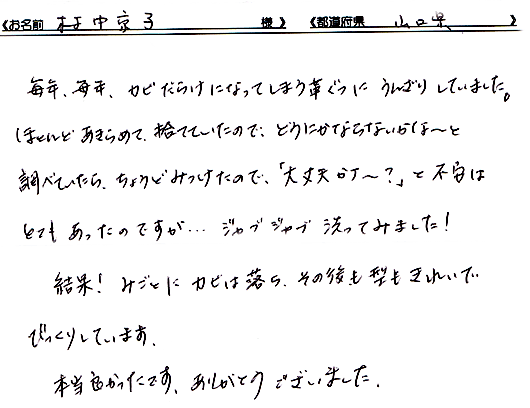 《お名前 村中京子 様》 《都道府県 山口県 》
毎年、毎年、カビだらけになってしまう革ぐつに うんざりしていました。
ほとんどあきらめて、捨てていたので、どうにかならないかな～と
調べていたら、ちょうどみつけたので、「大丈夫か～?」と不安は
とても あったのですが… ジャブジャブ 洗ってみました!
結果! みごとに カビは落ち、その後も型もきれいで
びっくりしています。
本当良かったです、ありがとうございました。